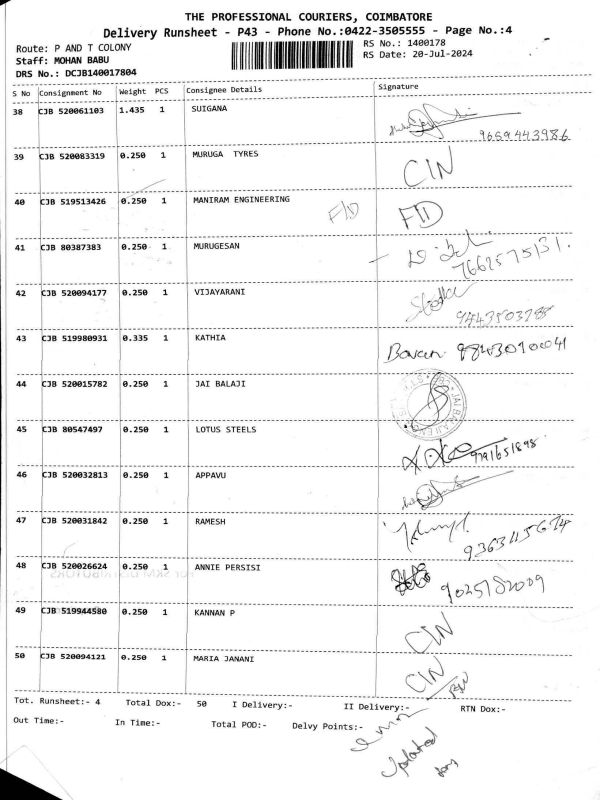 THE PROFESSIONAL COURIERS, COIMBATORE
Delivery Runsheet - P43 - Phone No.:0422-3505555 - Page No.:4
Route: P AND T COLONY
RS No.: 1400178
Staff: MOHAN BABU
RS Date: 20-Jul-2024
DRS No.: DCJB140017804
S No Consignment No Weight PCS Consignee Details Signature
38 CJB 520061103 1.435 1 SUIGANA 9659443986
39 CJB 520083319 0.250 1 MURUGA TYRES CIN
40 CJB 519513426 0.250 1 MANIRAM ENGINEERING F/D F/D
41 CJB 80387383 0.250 1 MURUGESAN 7662575131.
42 CJB 520094177 0.250 1 VIJAYARANI 9443503788
43 CJB 519980931 0.335 1 KATHIA 9843010041
44 CJB 520015782 0.250 1 JAI BALAJI
45 CJB 80547497 0.250 1 LOTUS STEELS 9791651898
46 CJB 520032813 0.250 1 APPAVU
47 CJB 520031842 0.250 1 RAMESH
48 CJB 520026624 0.250 1 ANNIE PERSISI 9025182009
49 CJB 519944580 0.250 1 KANNAN P CIN
50 CJB 520094121 0.250 1 MARIA JANANI CIN
Tot. Runsheet:- 4 Total Dox:- 50 I Delivery:- II Delivery:- RTN Dox:-
Out Time:- In Time:- Total POD:- Delvy Points:-